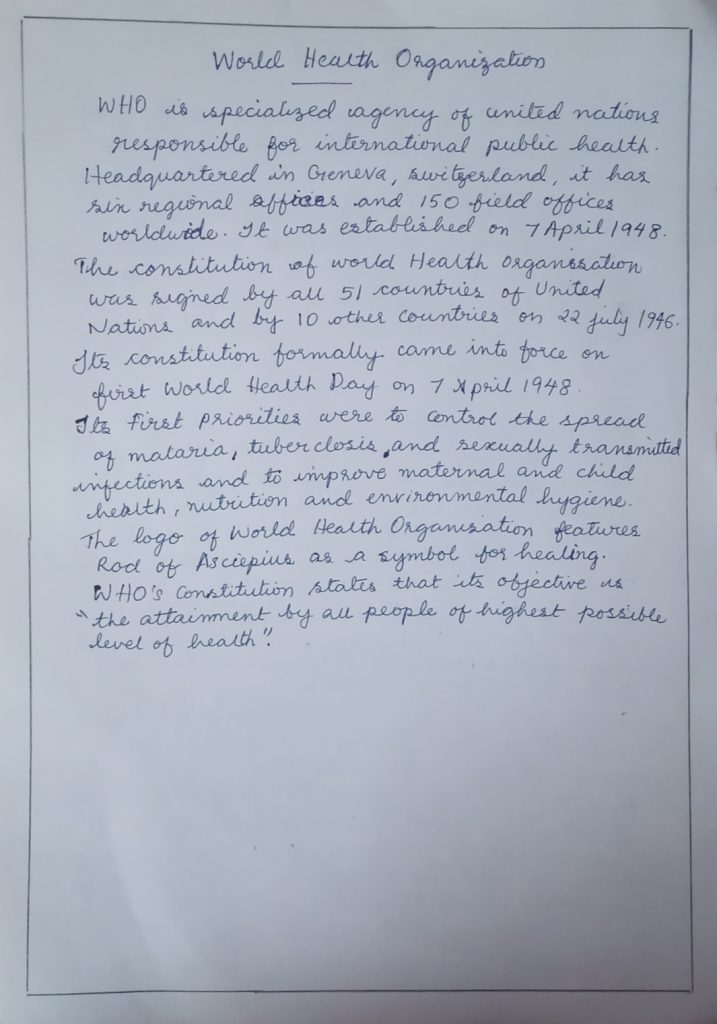 World Health Organization
WHO is specialized agency of united nations
responsible for international public health.
Headquartered in Geneva, switzerland, it has
six regional offices and 150 field offices
worldwide. It was established on 7 April 1948.
The constitution of world Health Organisation
was signed by all 51 countries of United
Nations and by 10 other countries on 22 july 1946.
Its constitution formally came into force on
first World Health Day on 7 April 1948.
Its first priorities were to control the spread
of malaria, tuberclosis, and sexually transmitted
infections and to improve maternal and child
health, nutrition and environmental hygiene.
The logo of World Health Organisation features
Rod of Asciepius as a symbol for healing.
WHO's Constitution states that its objective is
"the attainment by all people of highest possible
level of health".